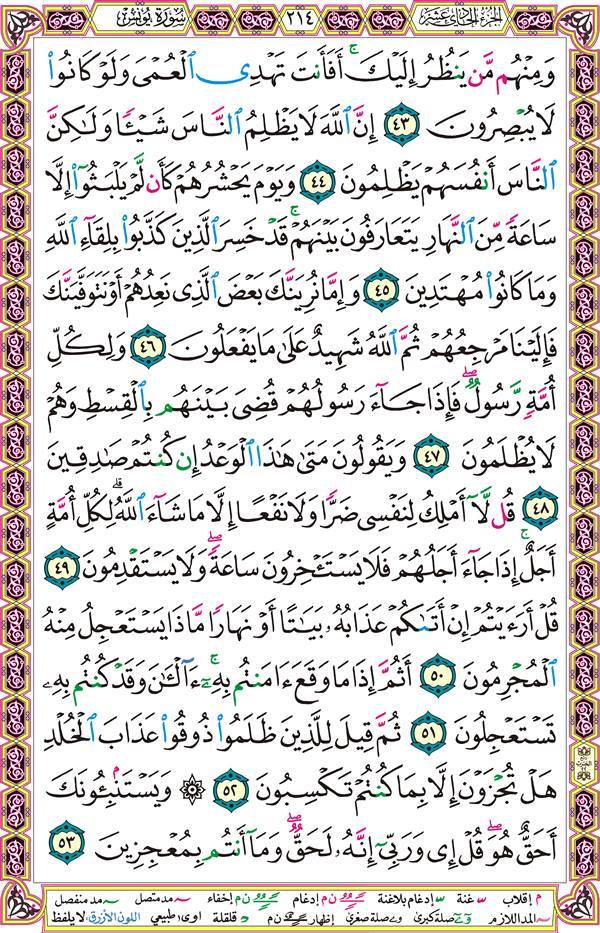 الجزء الحادي عشر ٢١٤ سورة يونس
وَمِنْهُم مَّن يَنظُرُ إِلَيْكَ ۚ أَفَأَنتَ تَهْدِى ٱلْعُمْىَ وَلَوْ كَانُوا۟
لَا يُبْصِرُونَ ٤٣ إِنَّ ٱللَّهَ لَا يَظْلِمُ ٱلنَّاسَ شَيْـًٔا وَلَـٰكِنَّ
ٱلنَّاسَ أَنفُسَهُمْ يَظْلِمُونَ ٤٤ وَيَوْمَ يَحْشُرُهُمْ كَأَن لَّمْ يَلْبَثُوٓا۟ إِلَّا
سَاعَةً مِّنَ ٱلنَّهَارِ يَتَعَارَفُونَ بَيْنَهُمْ ۚ قَدْ خَسِرَ ٱلَّذِينَ كَذَّبُوا۟ بِلِقَآءِ ٱللَّهِ
وَمَا كَانُوا۟ مُهْتَدِينَ ٤٥ وَإِمَّا نُرِيَنَّكَ بَعْضَ ٱلَّذِى نَعِدُهُمْ أَوْ نَتَوَفَّيَنَّكَ
فَإِلَيْنَا مَرْجِعُهُمْ ثُمَّ ٱللَّهُ شَهِيدٌ عَلَىٰ مَا يَفْعَلُونَ ٤٦ وَلِكُلِّ
أُمَّةٍ رَّسُولٌ ۖ فَإِذَا جَآءَ رَسُولُهُمْ قُضِىَ بَيْنَهُم بِٱلْقِسْطِ وَهُمْ
لَا يُظْلَمُونَ ٤٧ وَيَقُولُونَ مَتَىٰ هَـٰذَا ٱلْوَعْدُ إِن كُنتُمْ صَـٰدِقِينَ
٤٨ قُل لَّآ أَمْلِكُ لِنَفْسِى ضَرًّا وَلَا نَفْعًا إِلَّا مَا شَآءَ ٱللَّهُ ۗ لِكُلِّ أُمَّةٍ
أَجَلٌ ۚ إِذَا جَآءَ أَجَلُهُمْ فَلَا يَسْتَـْٔخِرُونَ سَاعَةً ۖ وَلَا يَسْتَقْدِمُونَ ٤٩
قُلْ أَرَءَيْتُمْ إِنْ أَتَىٰكُمْ عَذَابُهُۥ بَيَـٰتًا أَوْ نَهَارًا مَّاذَا يَسْتَعْجِلُ مِنْهُ
ٱلْمُجْرِمُونَ ٥٠ أَثُمَّ إِذَا مَا وَقَعَ ءَامَنتُم بِهِۦٓ ۚ ءَآلْـَٔـٰنَ وَقَدْ كُنتُم بِهِۦ
تَسْتَعْجِلُونَ ٥١ ثُمَّ قِيلَ لِلَّذِينَ ظَلَمُوا۟ ذُوقُوا۟ عَذَابَ ٱلْخُلْدِ
هَلْ تُجْزَوْنَ إِلَّا بِمَا كُنتُمْ تَكْسِبُونَ ٥٢ ۞ وَيَسْتَنۢبِـُٔونَكَ
أَحَقٌّ هُوَ ۖ قُلْ إِى وَرَبِّىٓ إِنَّهُۥ لَحَقٌّ ۖ وَمَآ أَنتُم بِمُعْجِزِينَ ٥٣
م إقلاب غنة إدغام بلاغنة ن م إدغام ن م إخفاء مد متصل مد منفصل
المد اللازم صلة كبرى صلة صغرى إظهار ن م قلقلة اوى طبيعي اللون الأزرق لا يلفظ